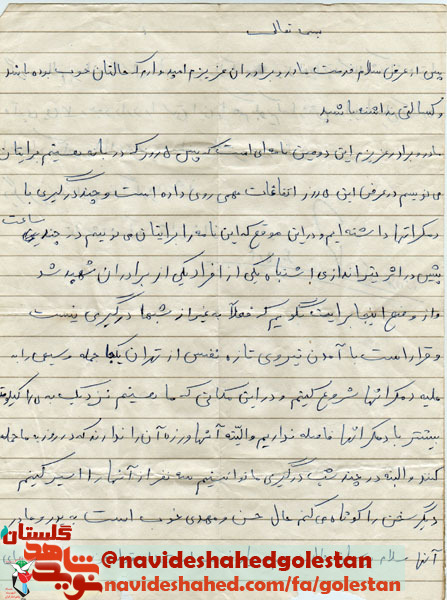 بسمه تعالی
پس از عرض سلام خدمت مادر و برادران عزیزم امیدوارم که حالتان خوب بوده باشد
و کسالتی نداشته باشید
مادر و برادر عزیزم این دومین نامه‌ای است که پس ۵ روز که در بانه هستیم برایتان
می نویسم در عرض این ۵ روز اتفاقات مهمی روی داده است و چند درگیری با
دمکراتها داشته ایم و در این موقع که این نامه را برایتان می نویسم در چند ساعت
پیش در اثر تیراندازی اشتباه یکی از افراد یکی از برادران شهید شد
و از وضع اینجا برایت بگویم که فعلاً به غیر از شبها درگیری نیست
و قرار است با آمدن نیروی تازه نفسی از تهران یکجا حمله وسیعی را به
علیه دمکراتها شروع کنیم و در این مکانی که ما هستیم نزدیک به کیلومتر
بیشتر با دمکراتها فاصله نداریم والبته آنها ورزه آن را ندارند که در روز به ما حمله
کنند والبته در چند شب درگیری ما توانستیم سه نفر از آنها را اسیر کنیم
دیگر سخن را کوتاه می کنم حال حسن و مهدی خوب است به پدر و مادر
آنها سلام
گلستان
نوید شاهد
@navideshahedgolestan
navideshahed.com/fa/golestan